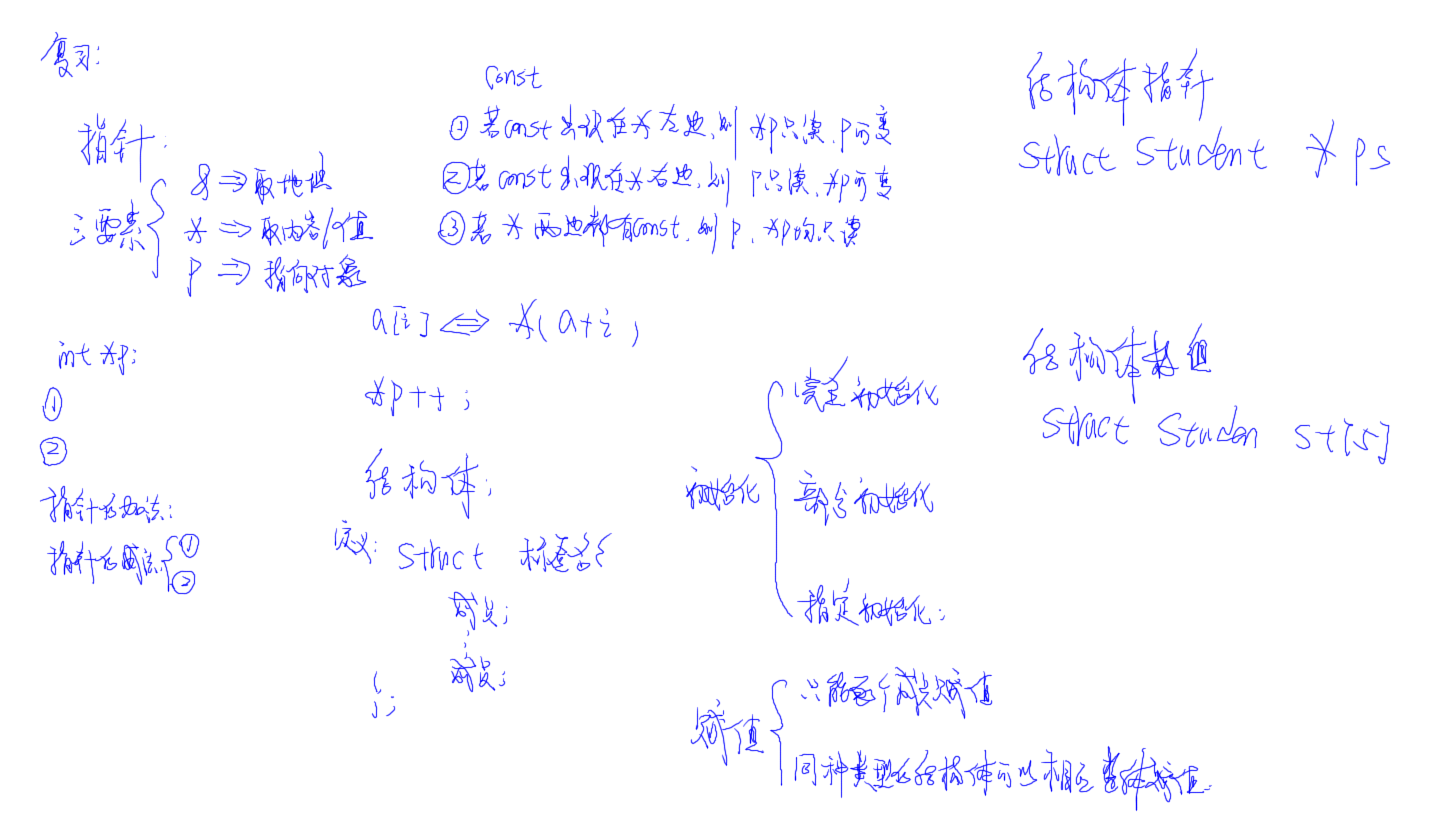 复习:
指针:
三要素
& ⇒ 取地址
* ⇒ 取内容/值
p ⇒ 指向对象
int *p;
①
②
指针的加法:
指针的减法 ①
②
const
① 若const出现在*左边,则 *p只读,p可变
② 若const出现在*右边,则 p只读,*p可变
③ 若*两边都有const,则p,*p均只读
a[i] ⇔ *(a+i)
*p++;
结构体;
定义: struct 标签名{
成员;
⋮
成员;
};
初始化
完全初始化
部分初始化
指定初始化:
赋值
只能逐个成员赋值
同种类型的结构体可以相互整体赋值.
结构体指针
struct student *ps
结构体数组
struct studen st[5]